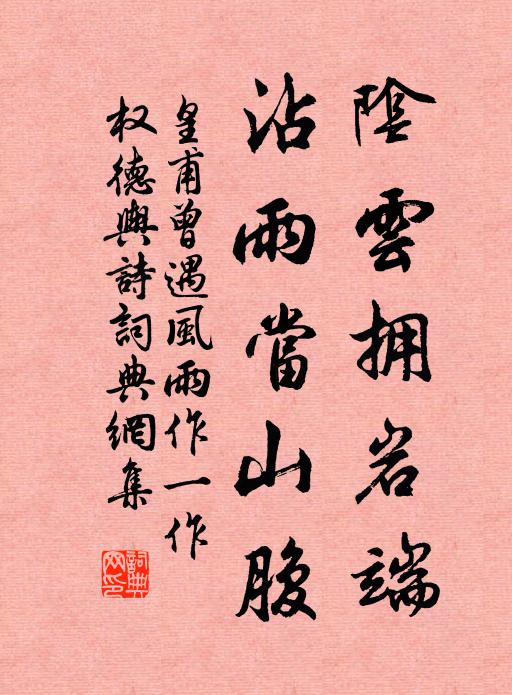 陰雲拥岩端
沾雨當山腹
皇甫曾遇風雨作一作
权德輿詩詞典網集
詞典网印